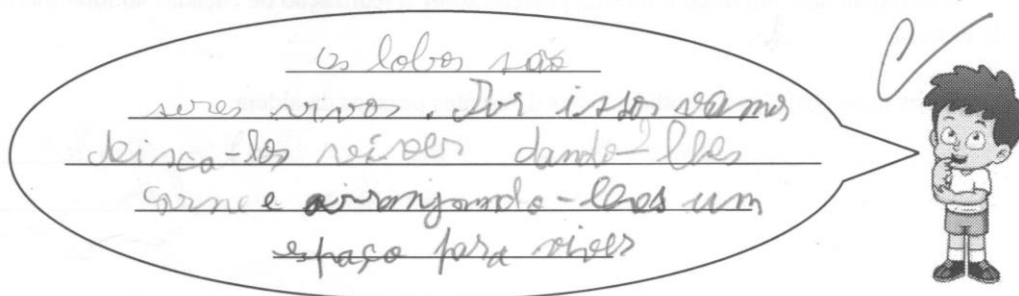 os lobos são
seres vivos. Por isso vamos
deixa-los viver dando-lhes
carne e arranjando-lhes um
espaço para viver